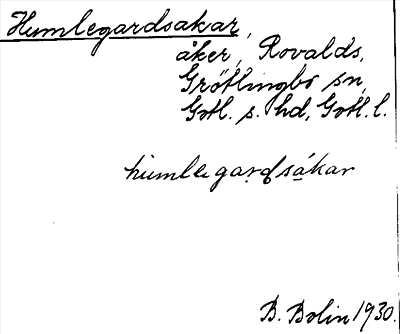 Humlegardsakar,
åker, Rovalds,
Grötlingbo sn,
Gotl. s. hd, Gotl. l.
humlegardsákar
B. Bolin 1930.